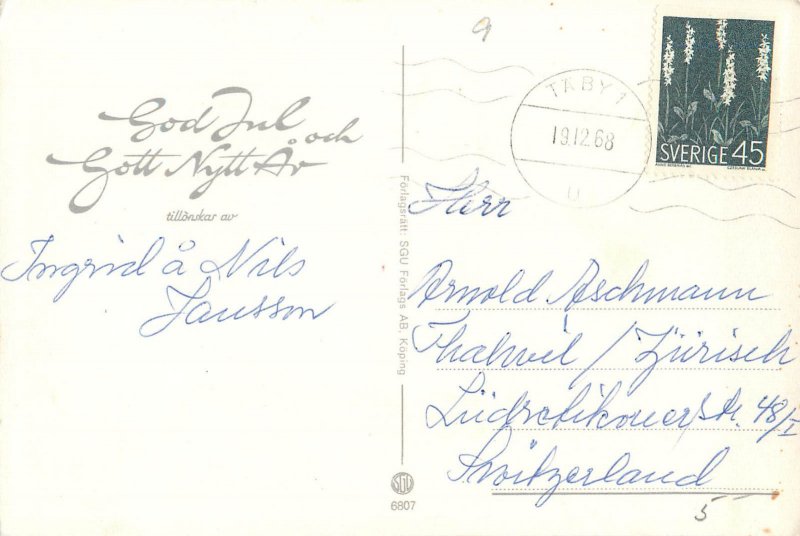 God Jul och
Gott Nytt År
tillönskar av
Ingrid å Nils
Jansson
Förlagsrätt: SGU Förlags AB, Köping
SGU
6807
9
TÄBY 1
19.12.68
U
SVERIGE 45
Herr
Arnold Aschmann
Thalwil / Zürisch
str. 48/I
Switzerland
5